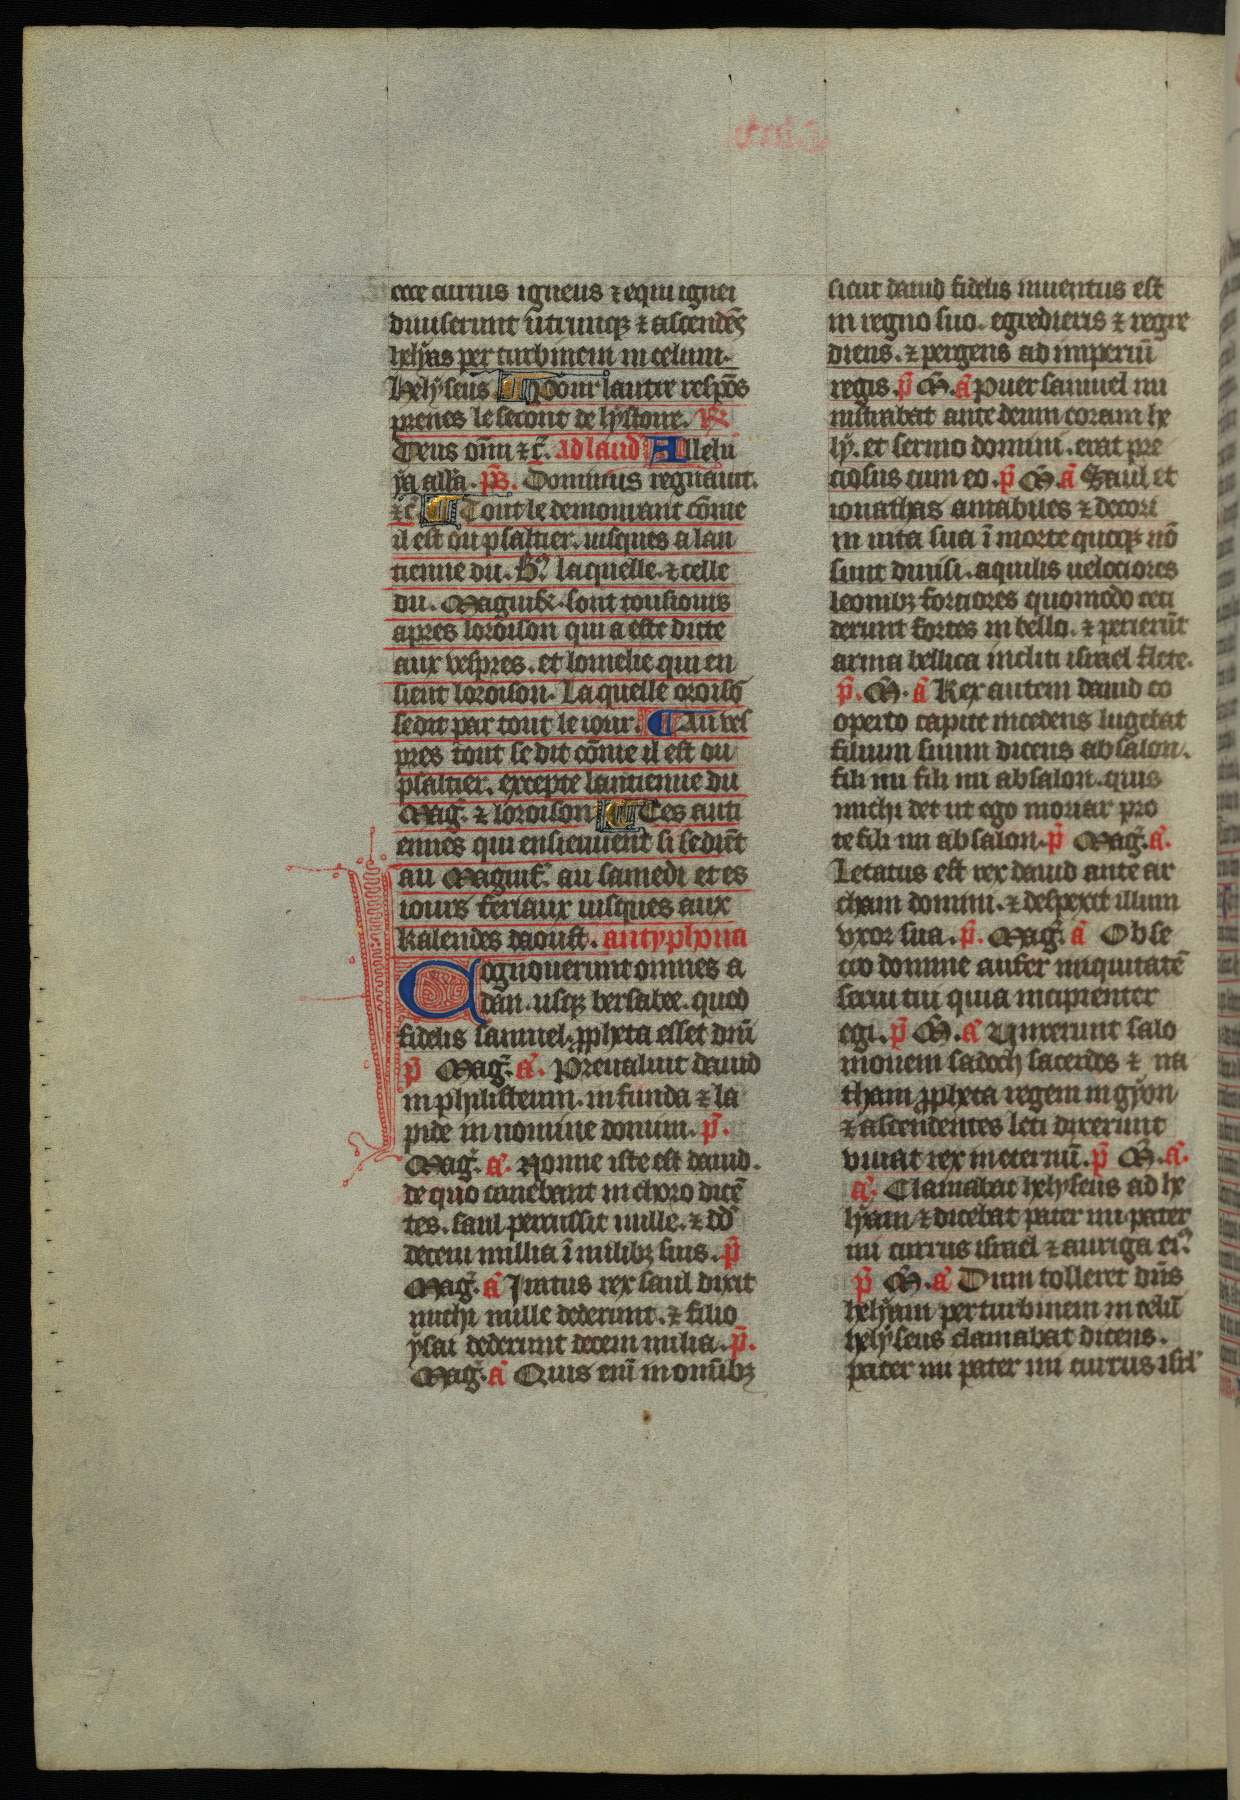 ecce currus igneus ⁊ equi ignei
diuiserunt ut̄rumqꝫ ⁊ ascendēs
helẏas per turbinem in celum.
Helẏseus ¶ Pour lautre respōs
prenes le secont de lẏstoire. ℟
Deus om̄i ⁊c̄. ad laud Allelu
ẏa all̄a. p̄s. Dominus regnauit.
⁊c̄ ¶ Tout le demourant cōme
il est ou psaltier. iusques a lan
tienne du. B̄. laquelle. ⁊ celle
du. Magnific̄. sont tousiours
apres loroison qui a este dicte
aux vespres. et lomelie qui en
sieut loroison. Laquelle oroisō
se dit par tout le iour. ¶ Au ves
pres tout se dit cōme il est ou
psaltier. excepte lantienne du
Maḡ. ⁊ loroison ¶ Les anti
ennes qui ensieuuent si se diēt
au Magnif̄. au samedi et es
iours feriaux iusques aux
kalendes daoust. antyphona
Cognouerunt omnes a
dan. usqꝫ bersabee. quod
fidelis samuel. ꝓpheta esset dn̄i
p̄ Maḡ. a᷑. Preualuit dauid
in philisteum. in funda ⁊ la
pide in nomine domini. p̄.
Maḡ. a᷑. Nonne iste est dauid.
de quo canebant in choro dicē
tes. saul percussit mille. ⁊ dd̄
decem millia ī milibꝫ suis. p̄
Maḡ. a᷑ Iratus rex saul dixit
michi mille dederunt. ⁊ filio
ẏsai dederunt decem milia. p̄.
Maḡ. a᷑ Quis enī in omnibꝫ
sicut dauid fidelis inuentus est
in regno suo. egredieris ⁊ regre
diens. ⁊ pergens ad imperiū
regis. p̄ M̄. a᷑ Puer samuel mi
nistrabat ante deum coram he
lẏ. et sermo domini. erat pre
ciosus cum eo. p̄ M̄. a᷑ Saul et
ionathas amabiles ⁊ decori
in uita sua ī morte quoqꝫ nō
sunt diuisi. aquilis uelociores
leonibꝫ fortiores quomodo ceci
derunt fortes in bello. ⁊ perierūt
arma bellica incliti israel flete.
p̄. M̄. a᷑ Rex autem dauid co
operto capite incedens lugebat
filium suum dicens absalon.
fili mi fili mi absalon. quis
michi det ut ego moriar pro
te fili mi absalon. p̄ Maḡ. a᷑.
Letatus est rex dauid ante ar
cham domini. ⁊ despexit illum
vxor sua. p̄. Maḡ. a᷑ Obse
cro domine aufer iniquitatē
serui tui quia insipienter
egi. p̄ M̄. a᷑ Unxerunt salo
monem sadoch sacerdos ⁊ na
tham ꝓpheta regem in gẏon
⁊ ascendentes leti dixerunt
viuat rex in eternū. p̄ M̄. a᷑.
a᷑. Clamabat helyseus ad he
lẏam ⁊ dicebat pater mi pater
mi currus israel ⁊ auriga ei᷒
p̄ M̄. a᷑ Dum tolleret dn̄s
helẏam per turbinem in celū
helẏseus clamabat dicens.
pater mi pater mi currus isrl̄